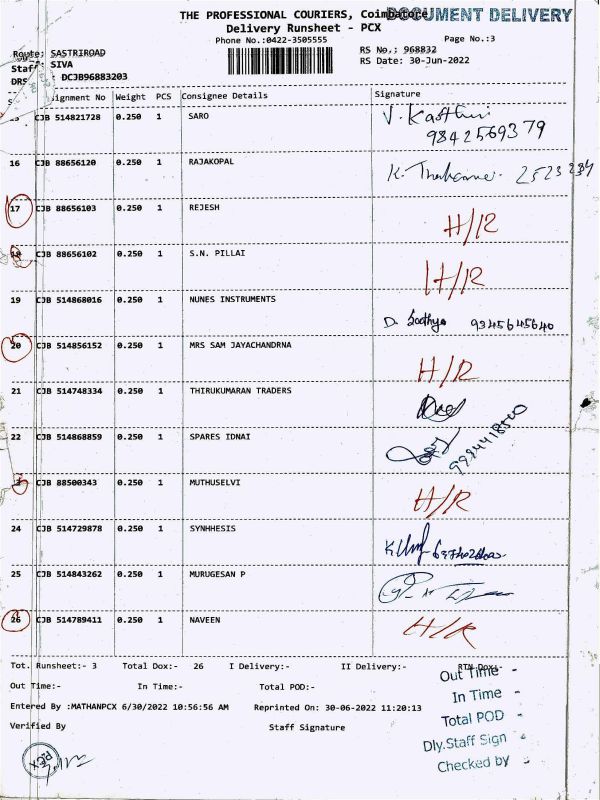 THE PROFESSIONAL COURIERS, Coimbatore
DOCUMENT DELIVERY
Delivery Runsheet - PCX
Phone No.:0422-3505555
Page No.:3
Route: SASTRIROAD
RS No.: 968832
Staff: SIVA
RS Date: 30-Jun-2022
DRS : DCJB96883203
signment No Weight PCS Consignee Details Signature
CJB 514821728 0.250 1 SARO V. Kasthuri
9842569379
16 CJB 88656120 0.250 1 RAJAKOPAL K. 2523234
17 CJB 88656103 0.250 1 REJESH H/R
18 CJB 88656102 0.250 1 S.N. PILLAI H/R
19 CJB 514868016 0.250 1 NUNES INSTRUMENTS D. Sathya 9345645640
20 CJB 514856152 0.250 1 MRS SAM JAYACHANDRNA H/R
21 CJB 514748334 0.250 1 THIRUKUMARAN TRADERS
22 CJB 514868859 0.250 1 SPARES IDNAI
CJB 88500343 0.250 1 MUTHUSELVI H/R
24 CJB 514729878 0.250 1 SYNHHESIS
25 CJB 514843262 0.250 1 MURUGESAN P
26 CJB 514789411 0.250 1 NAVEEN H/R
Tot. Runsheet:- 3 Total Dox:- 26 I Delivery:- II Delivery:- RTN Dox:-
Out Time:- In Time:- Total POD:-
Entered By :MATHANPCX 6/30/2022 10:56:56 AM Reprinted On: 30-06-2022 11:20:13
Verified By Staff Signature
Out Time -
In Time -
Total POD -
Dly.Staff Sign -
Checked by -
PCX